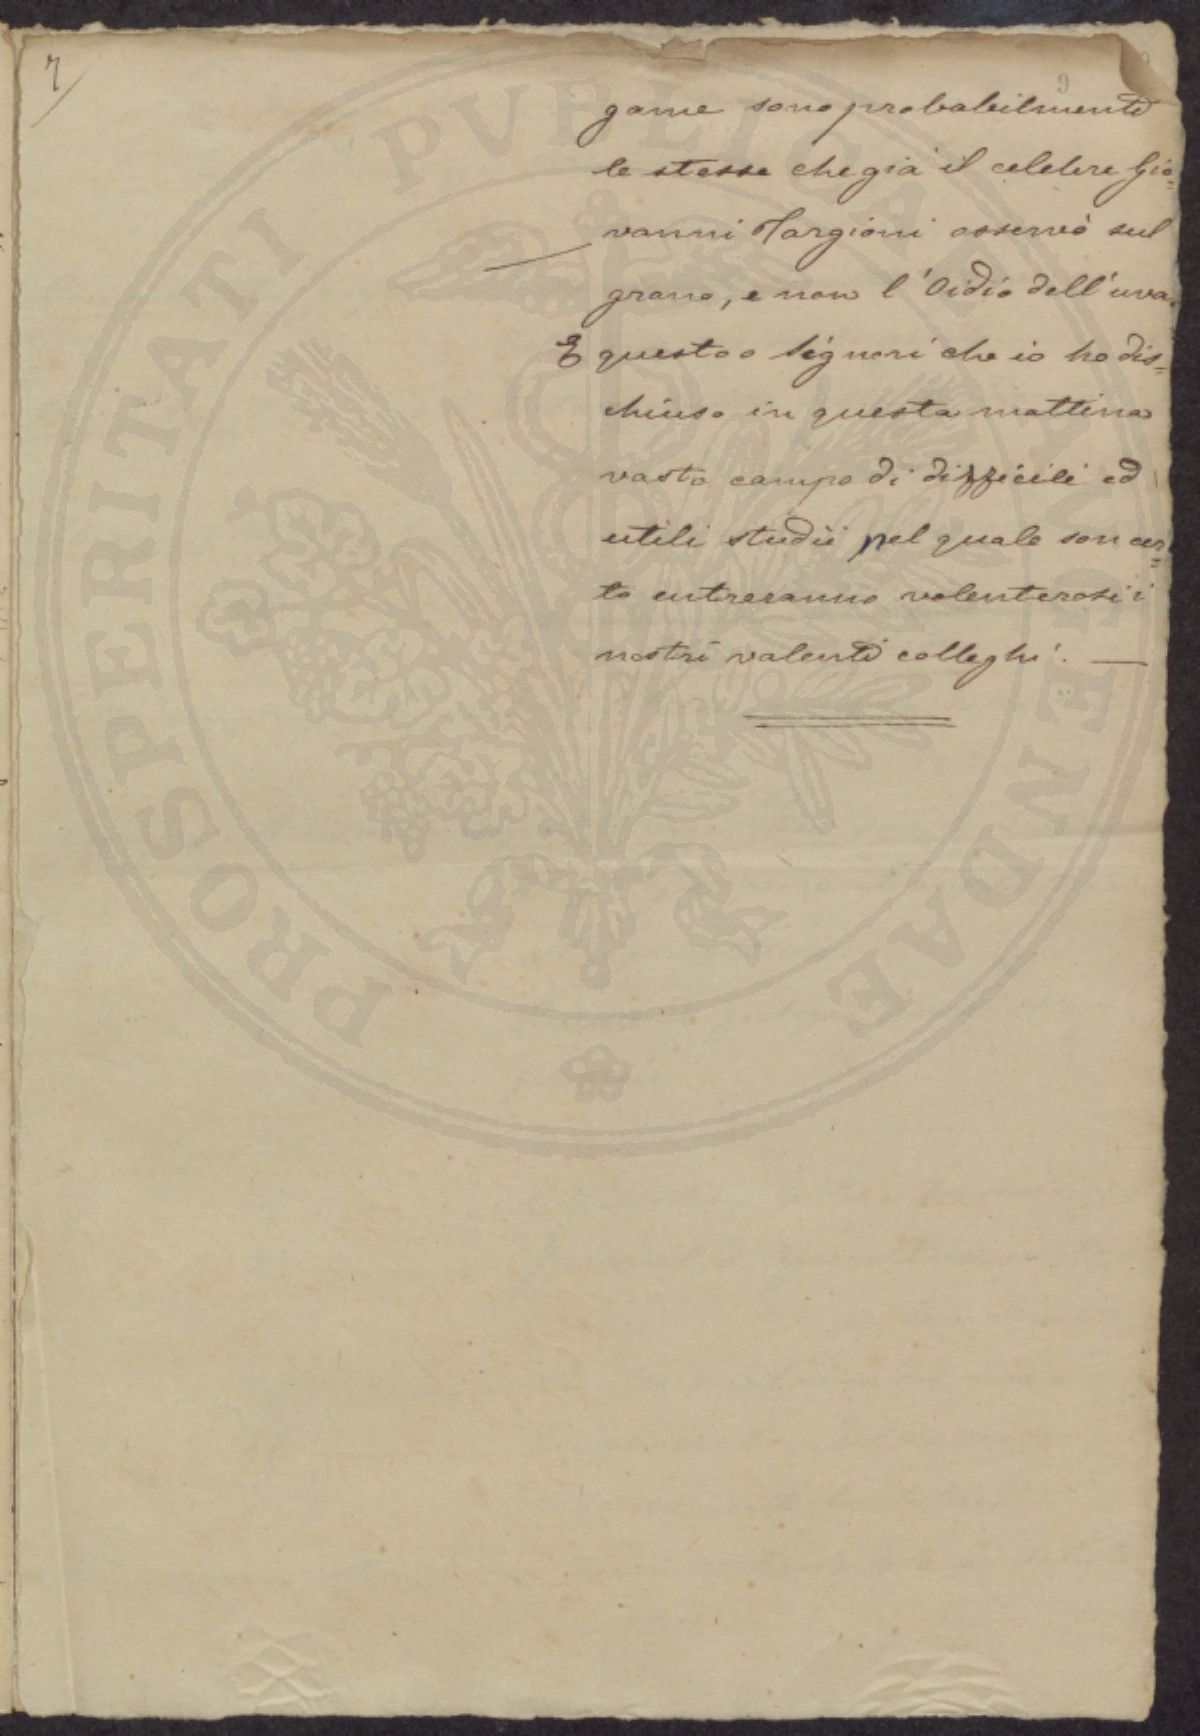 7
9
game sono probabilmente
le stesse che già il celebre Gio=
vanni Targioni osservò sul
grano, e non l'Oidio dell'uva.
E questo o Signori che io ho dis=
chiuso in questa mattina
vasto campo di difficili ed
utili studii pel quale son cer=
to entreranno volenterosi i
nostri valenti colleghi. —
PROSPERITATI PVBLICAE AVGENDAE